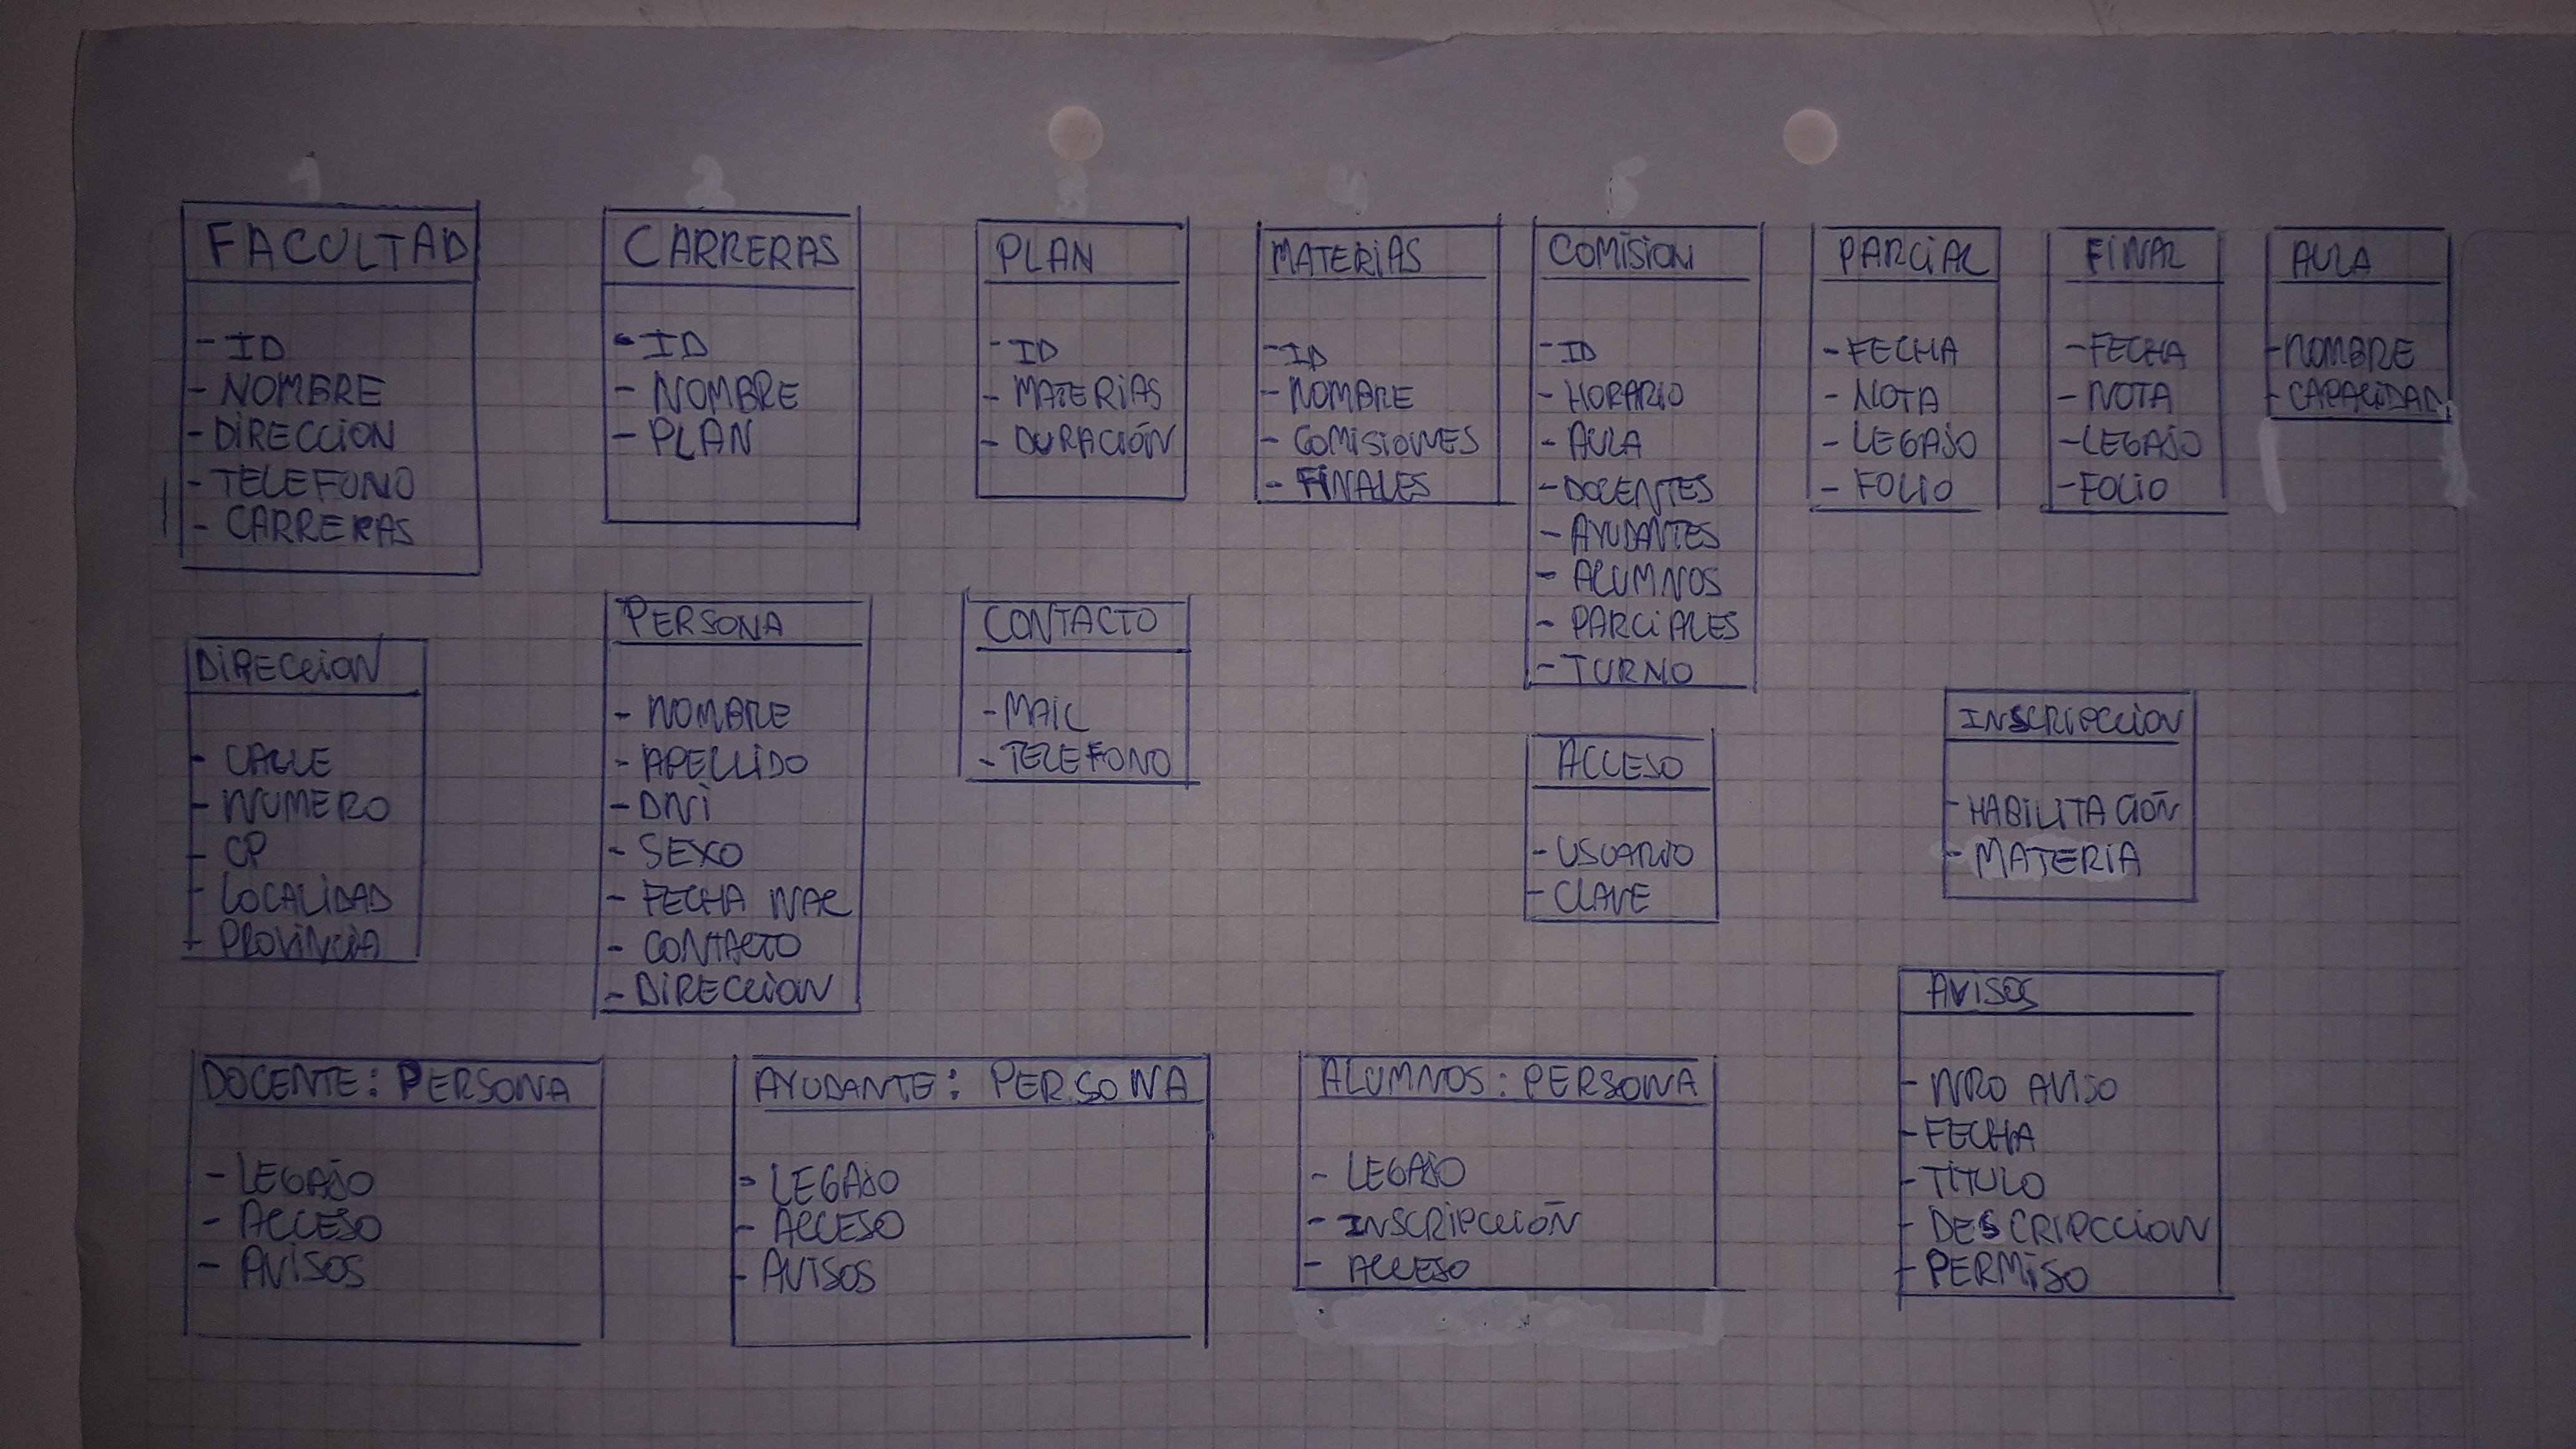 1
2
3
4
5
FACULTAD
- ID
- NOMBRE
- DIRECCION
- TELEFONO
- CARRERAS
CARRERAS
- ID
- NOMBRE
- PLAN
PLAN
- ID
- MATERIAS
- DURACIÓN
MATERIAS
- ID
- NOMBRE
- COMISIONES
- FINALES
COMISION
- ID
- HORARIO
- AULA
- DOCENTES
- AYUDANTES
- ALUMNOS
- PARCIALES
- TURNO
PARCIAL
- FECHA
- NOTA
- LEGAJO
- FOLIO
FINAL
- FECHA
- NOTA
- LEGAJO
- FOLIO
AULA
- NOMBRE
- CAPACIDAD
DIRECCION
- CALLE
- NUMERO
- CP
- LOCALIDAD
- PROVINCIA
PERSONA
- NOMBRE
- APELLIDO
- DNI
- SEXO
- FECHA NAC
- CONTACTO
- DIRECCION
CONTACTO
- MAIL
- TELEFONO
ACCESO
- USUARIO
- CLAVE
INSCRIPCCION
- HABILITACIÓN
- MATERIA
DOCENTE: PERSONA
- LEGAJO
- ACCESO
- AVISOS
AYUDANTE: PERSONA
- LEGAJO
- ACCESO
- AVISOS
ALUMNOS: PERSONA
- LEGAJO
- INSCRIPCCIÓN
- ACCESO
AVISOS
- NRO AVISO
- FECHA
- TITULO
- DESCRIPCCION
- PERMISO